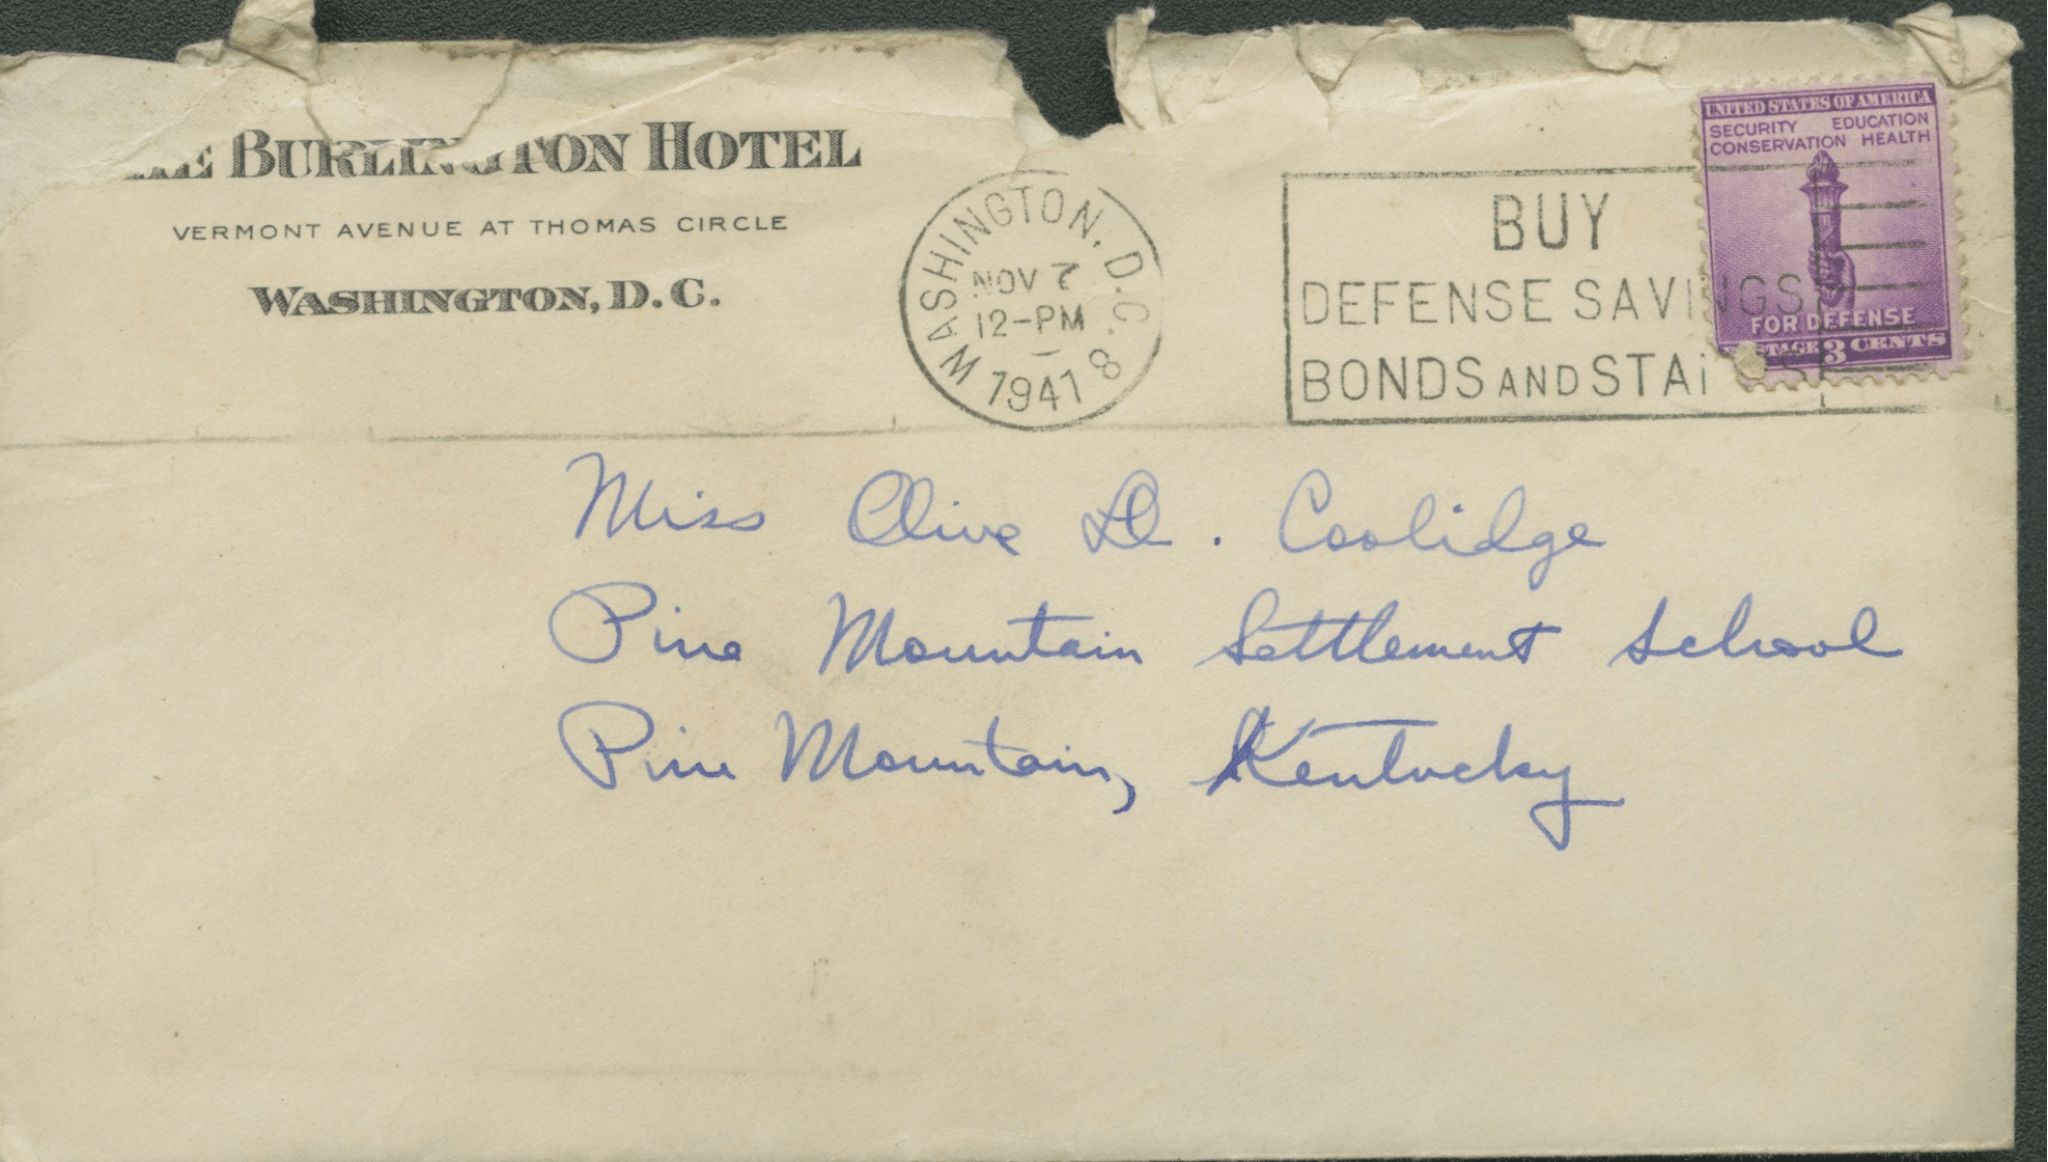 THE BURLINGTON HOTEL
VERMONT AVENUE AT THOMAS CIRCLE
WASHINGTON, D.C.
WASHINGTON, D.C. 8
NOV 7
12-PM
1941
BUY
DEFENSE SAVINGS
BONDS AND STAMPS
UNITED STATES OF AMERICA
SECURITY EDUCATION
CONSERVATION HEALTH
FOR DEFENSE
POSTAGE 3 CENTS
Miss Olive D. Coolidge
Pine Mountain Settlement School
Pine Mountain, Kentucky